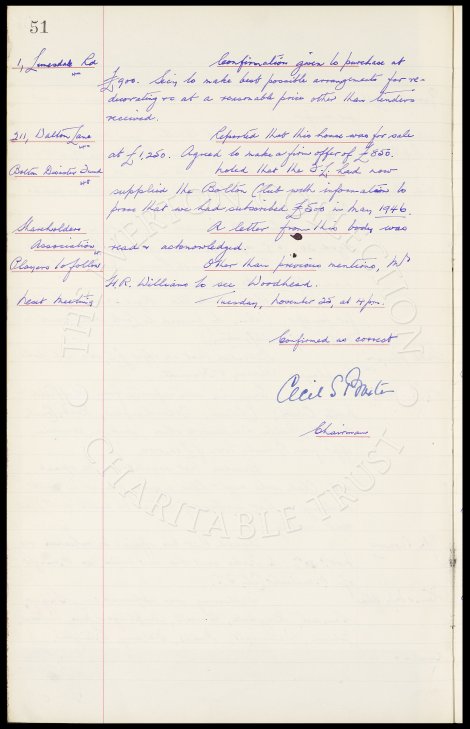 51
1, Lonsdale Rd Confirmation given to purchase at
£900. Secy to make best possible arrangements for re-
decorating &c at a reasonable price other than tenders
received.
211, Dalton Lane Reported that this house was for sale
at £1,250. Agreed to make a firm offer of £850.
Bolton Disaster Fund Noted that the F.L. had now
supplied the Bolton Club with information to
prove that we had subscribed £500 in May 1946.
Shareholders A letter from this body was
Association read & acknowledged.
Players to follow Other than previous mentions, Mr
H.R. Williams to see Woodhead.
Next Meeting Tuesday, November 25, at 4pm.
Confirmed as correct
Cecil S Baxter
Chairman
THE COLLECTION
CHARITABLE TRUST